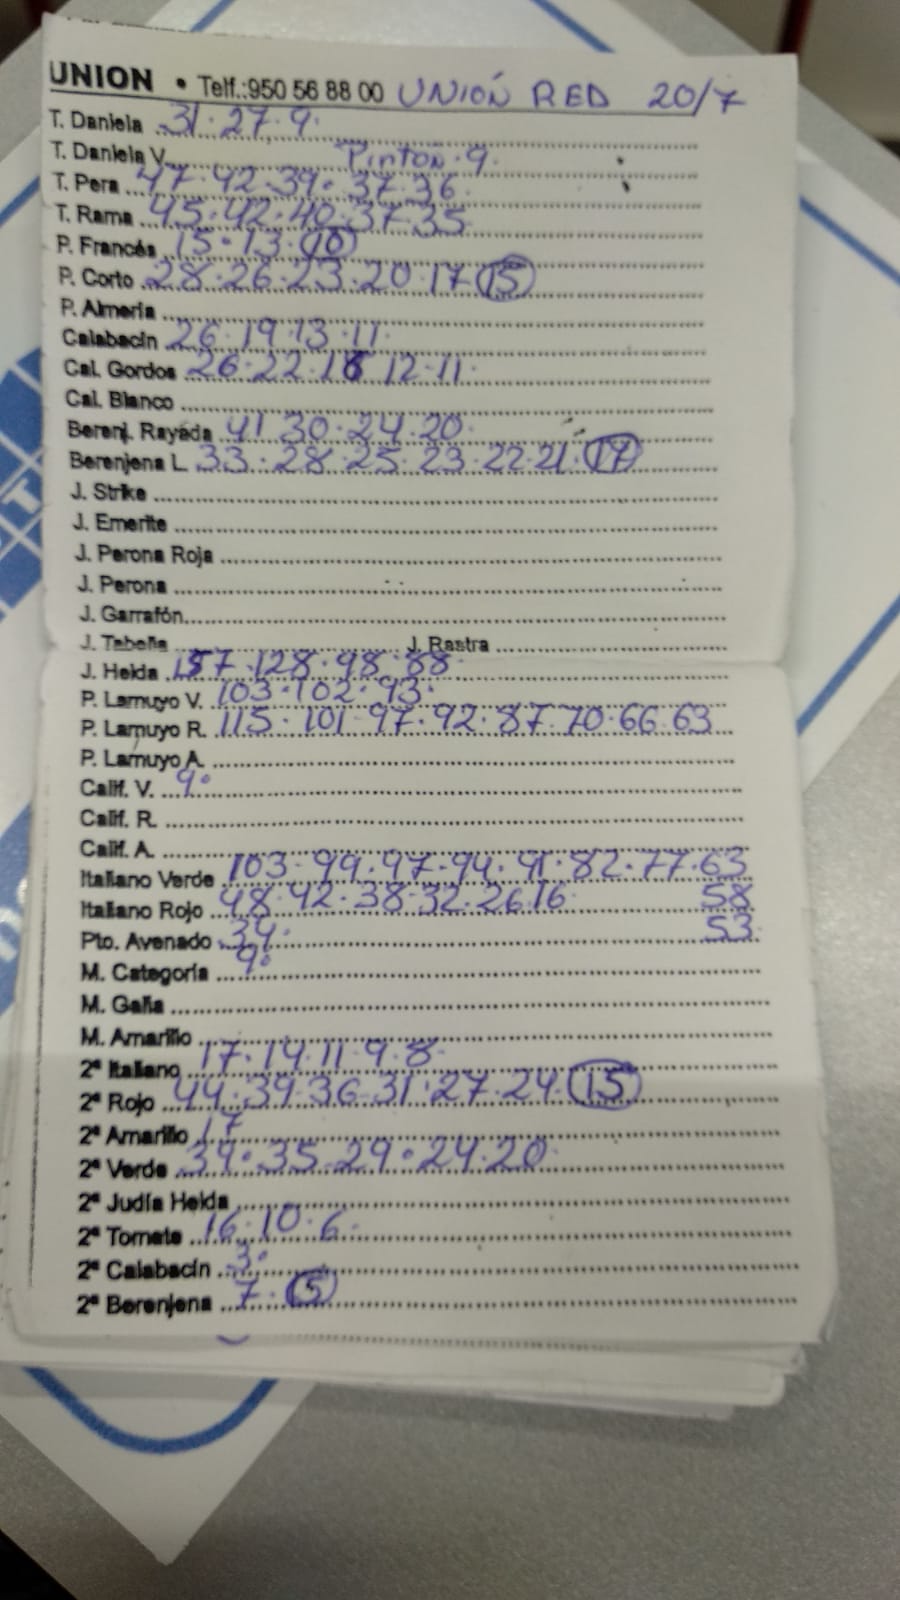 UNION • Telf.:950 56 88 00 UNIÓN RED 20/7
T. Daniela 31·27·9·
T. Daniela V. Pinton·9·
T. Pera 47·42·39·37·36·
T. Rama 45·42·40·37·35
P. Francés 15·13·10
P. Corto 28·26·23·20·17·15
P. Almería
Calabacín 26·19·13·11·
Cal. Gordos 26·22·18 12·11·
Cal. Blanco
Berenj. Rayada 41 30·24·20·
Berenjena L. 33·28·25·23·22·21·17
J. Strike
J. Emerite
J. Perona Roja
J. Perona
J. Garrafón
J. Tabella J. Rastra
J. Helda 157·128·98·88·
P. Lamuyo V. 103·102·93·
P. Lamuyo R. 115·101·97·92·87·70·66·63
P. Lamuyo A.
Calif. V. 9·
Calif. R.
Calif. A.
Italiano Verde 103·99·97·94·91·82·77·63
Italiano Rojo 48·42·38·32·26·16· 58
Pto. Avenado 34· 53
M. Categoría 9·
M. Galia
M. Amarillo
2ª Italiano 17·14·11·9·8·
2ª Rojo 44·39·36·31·27·24·15
2ª Amarillo 17
2ª Verde 39·35·29·24·20·
2ª Judía Helda
2ª Tomate 16·10·6·
2ª Calabacín 3·
2ª Berenjena 7·5